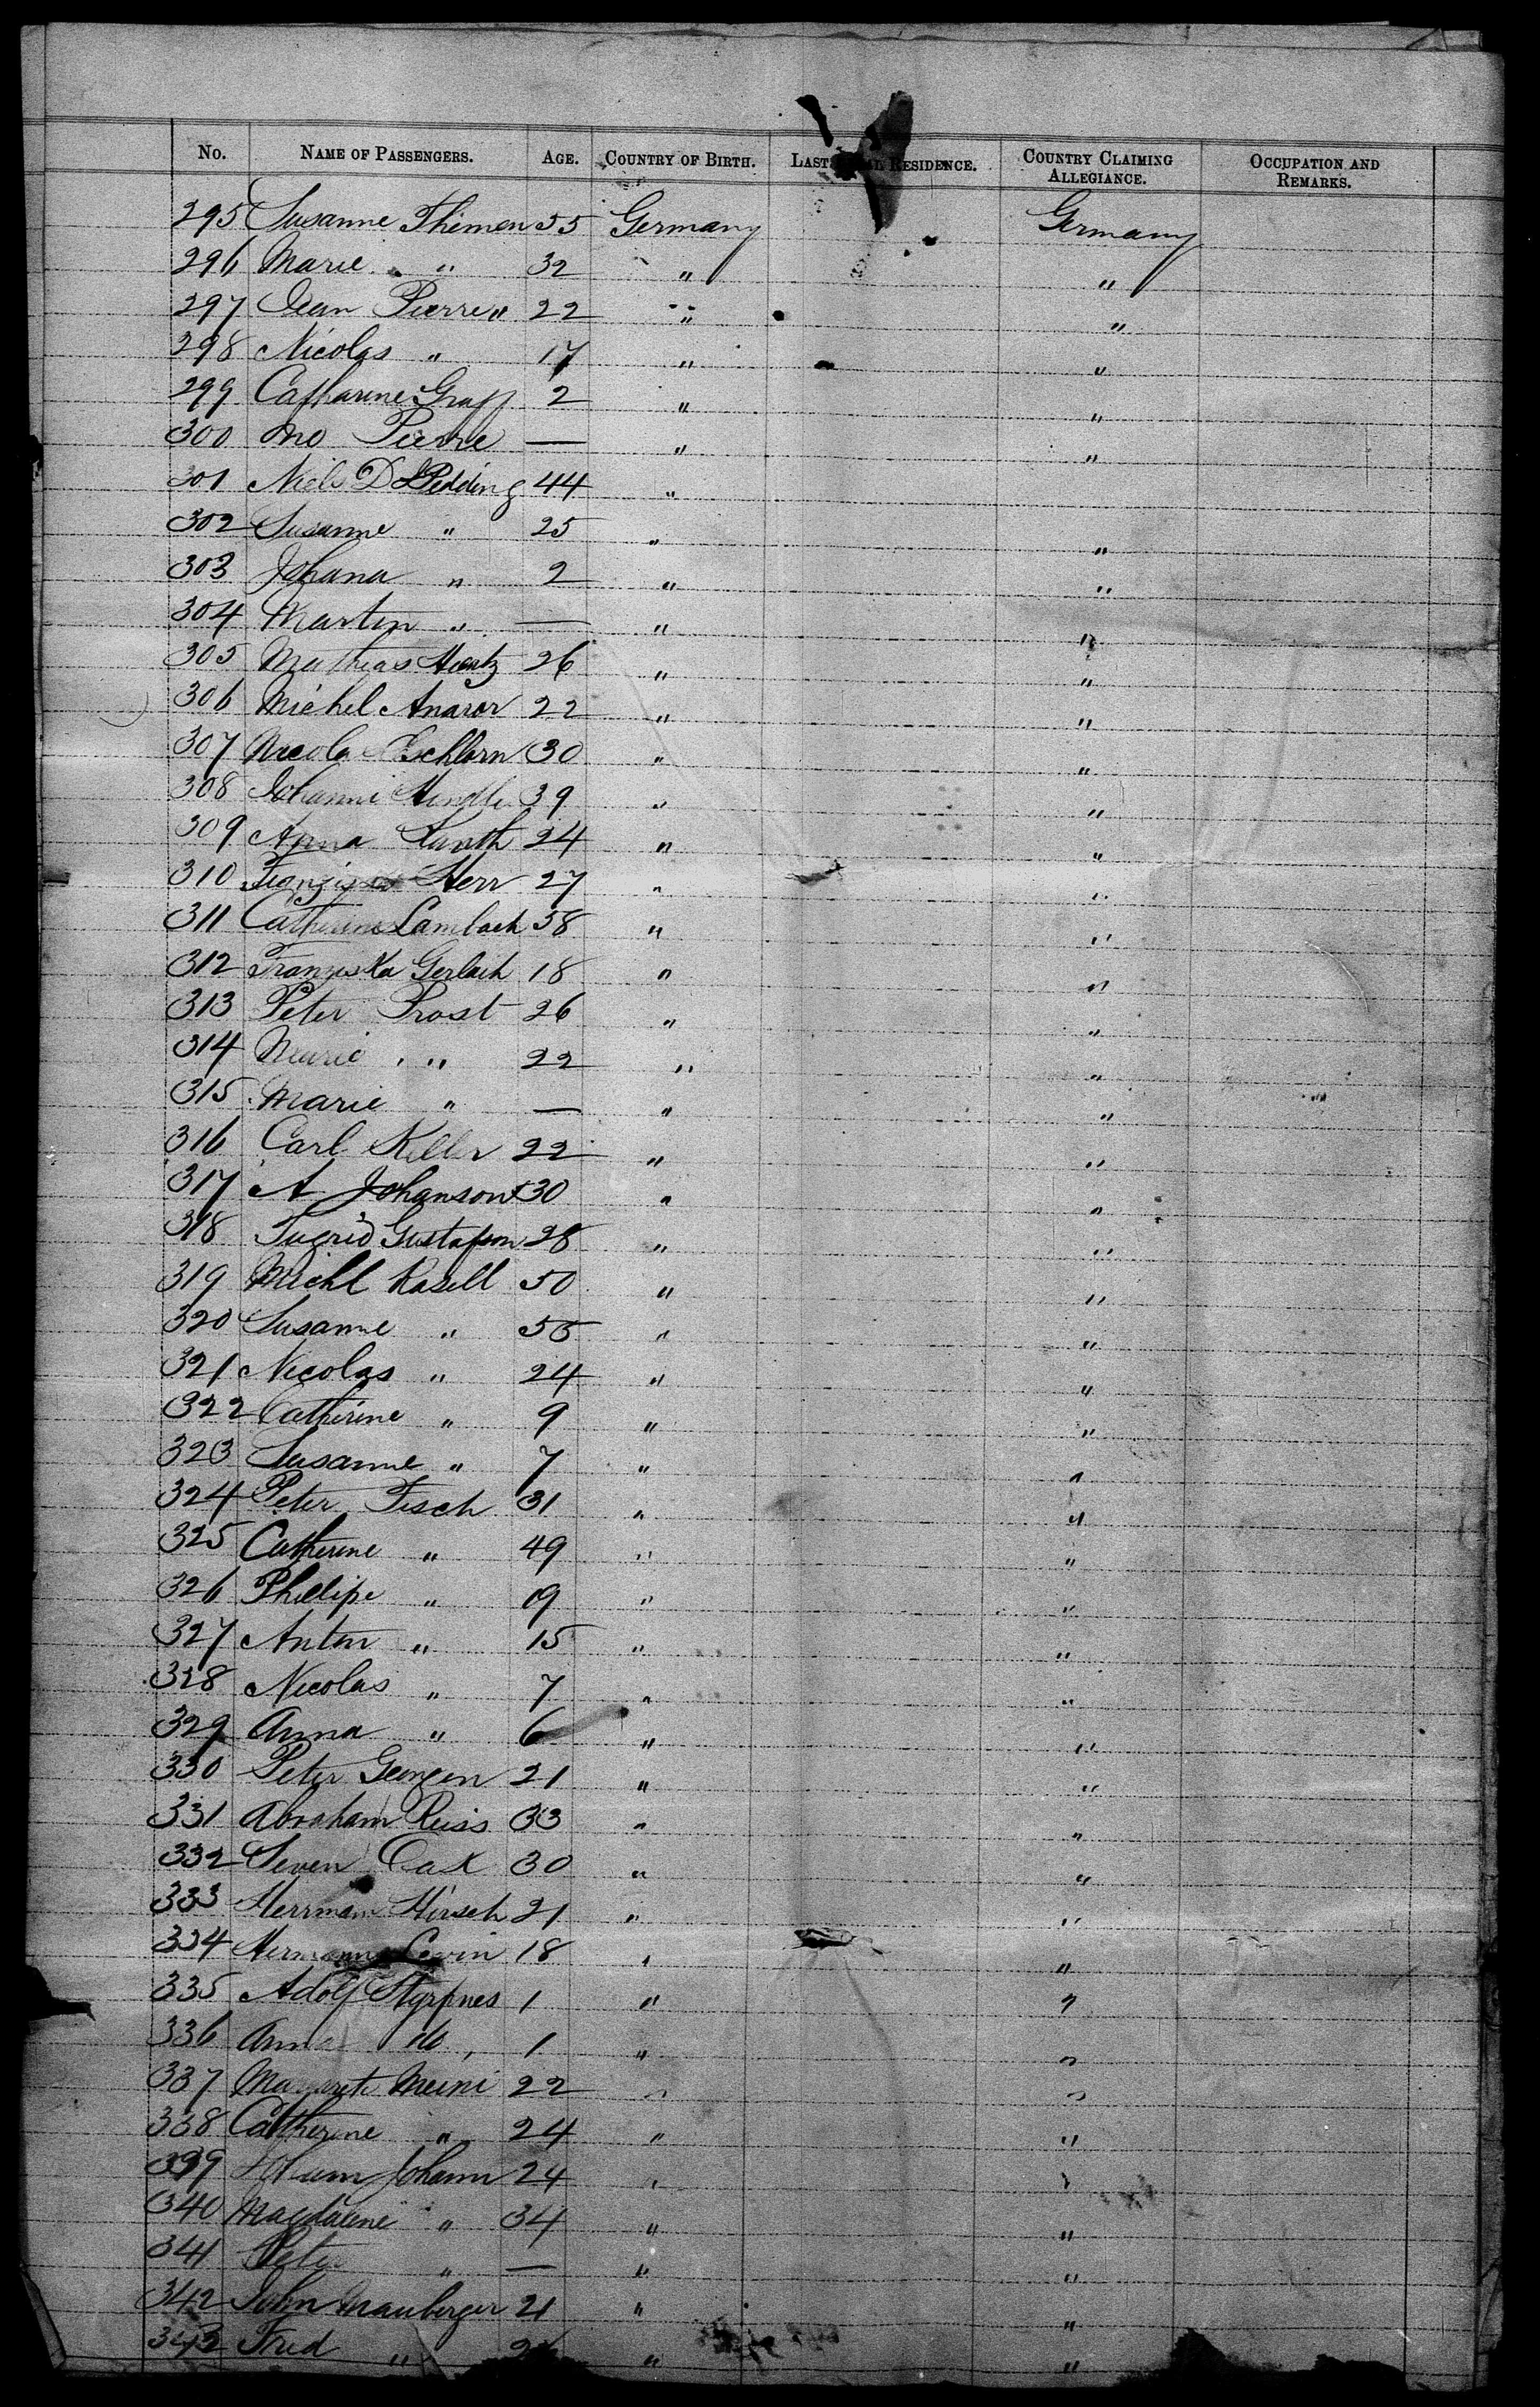 No. NAME OF PASSENGERS. AGE. COUNTRY OF BIRTH. LAST RESIDENCE. COUNTRY CLAIMING ALLEGIANCE. OCCUPATION AND REMARKS.
295 Susanne Thimen 55 Germany Germany
296 Marie " 32 " "
297 Jean Pierre " 22 " "
298 Nicolas " 17 " "
299 Catharine Graff 2 " "
300 Mo Pierre — " "
301 Niels D Pedding 44 "
302 Susanne " 25 " "
303 Johana " 2 " "
304 Martin " — " "
305 Mathias 26 " "
306 Michel 22 " "
307 30 " "
308 39 " "
309 Anna 24 " "
310 Herr 27 " "
311 Catherine Lambach 58 " "
312 Franziska Gerlach 18 " "
313 Peter Prost 26 " "
314 Marie " 22 " "
315 Marie " — " "
316 Carl Keller 22 " "
317 A Johanson 30 " "
318 Gustafson 28 " "
319 Michl Rasell 50 " "
320 Susanne " 55 " "
321 Nicolas " 24 " "
322 Catherine " 9 " "
323 Susanne " 7 " "
324 Peter Fisch 31 " "
325 Catherine " 49 " "
326 Phillipe " 19 " "
327 Anton " 15 " "
328 Nicolas " 7 " "
329 Anna " 6 " "
330 Peter 21 " "
331 Abraham Reiss 33 " "
332 30 " "
333 Herrmann Hirsch 21 " "
334 Levin 18 " "
335 Adolf 1 " "
336 Anna do 1 " "
337 Margarete Meini 22 " "
338 Catherine " 24 " "
339 Johann 24 " "
340 Magdalene " 34 " "
341 Peter " — " "
342 John Mauberger 21 " "
343 Fred " " "